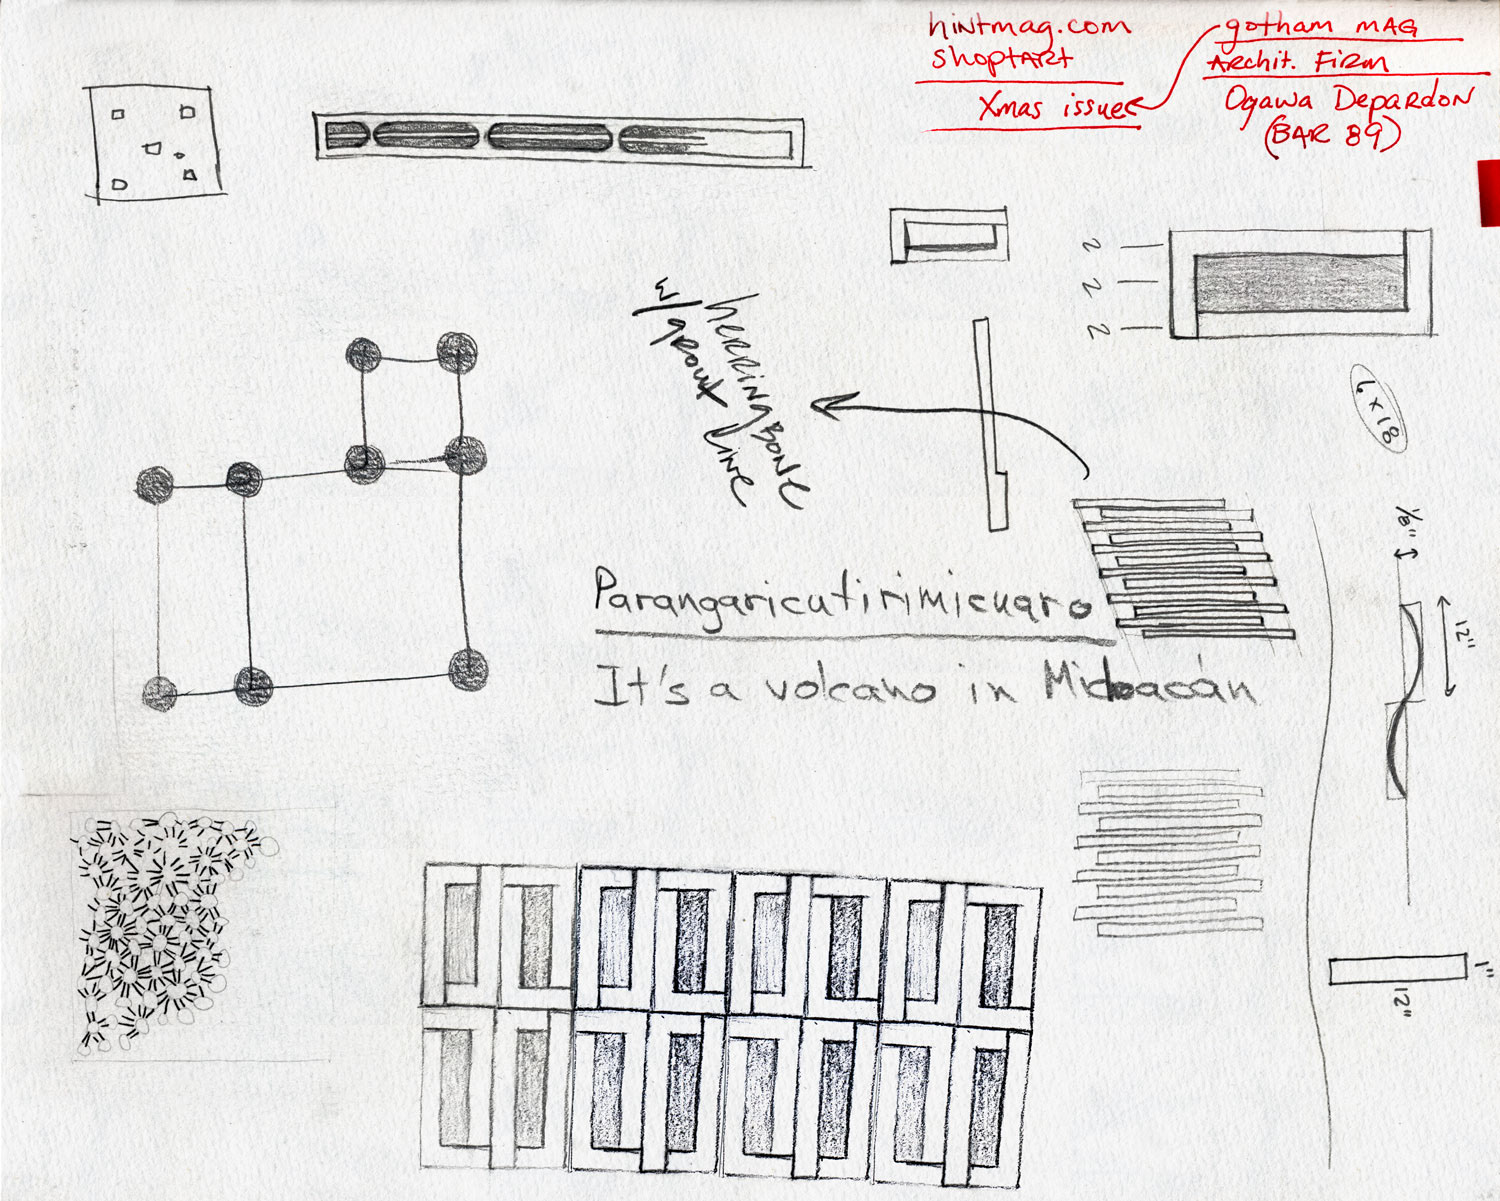 hintmag.com
shoptART
Xmas issue
gotham MAG
Archit. Firm
Ogawa Depardon
(BAR 89)
2
2
2
6 x 18
herringBone
w/ grout line
1/8"
12"
Parangaricutirimicuaro
It's a volcano in Michoacán
1"
12"